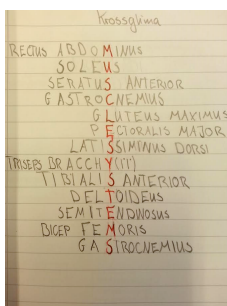 Krossglíma
RECTUS ABDOMINUS
SOLEUS
SERATUS ANTERIOR
GASTROCNEMIUS
GLUTEUS MAXIMUS
PECTORALIS MAJOR
LATISSIMINUS DORSI
TRISEPS BRACCHY(IT)
TIBIALIS ANTERIOR
DELTOIDEUS
SEMITENDINOSUS
BICEP FEMORIS
GASTROCNEMIUS